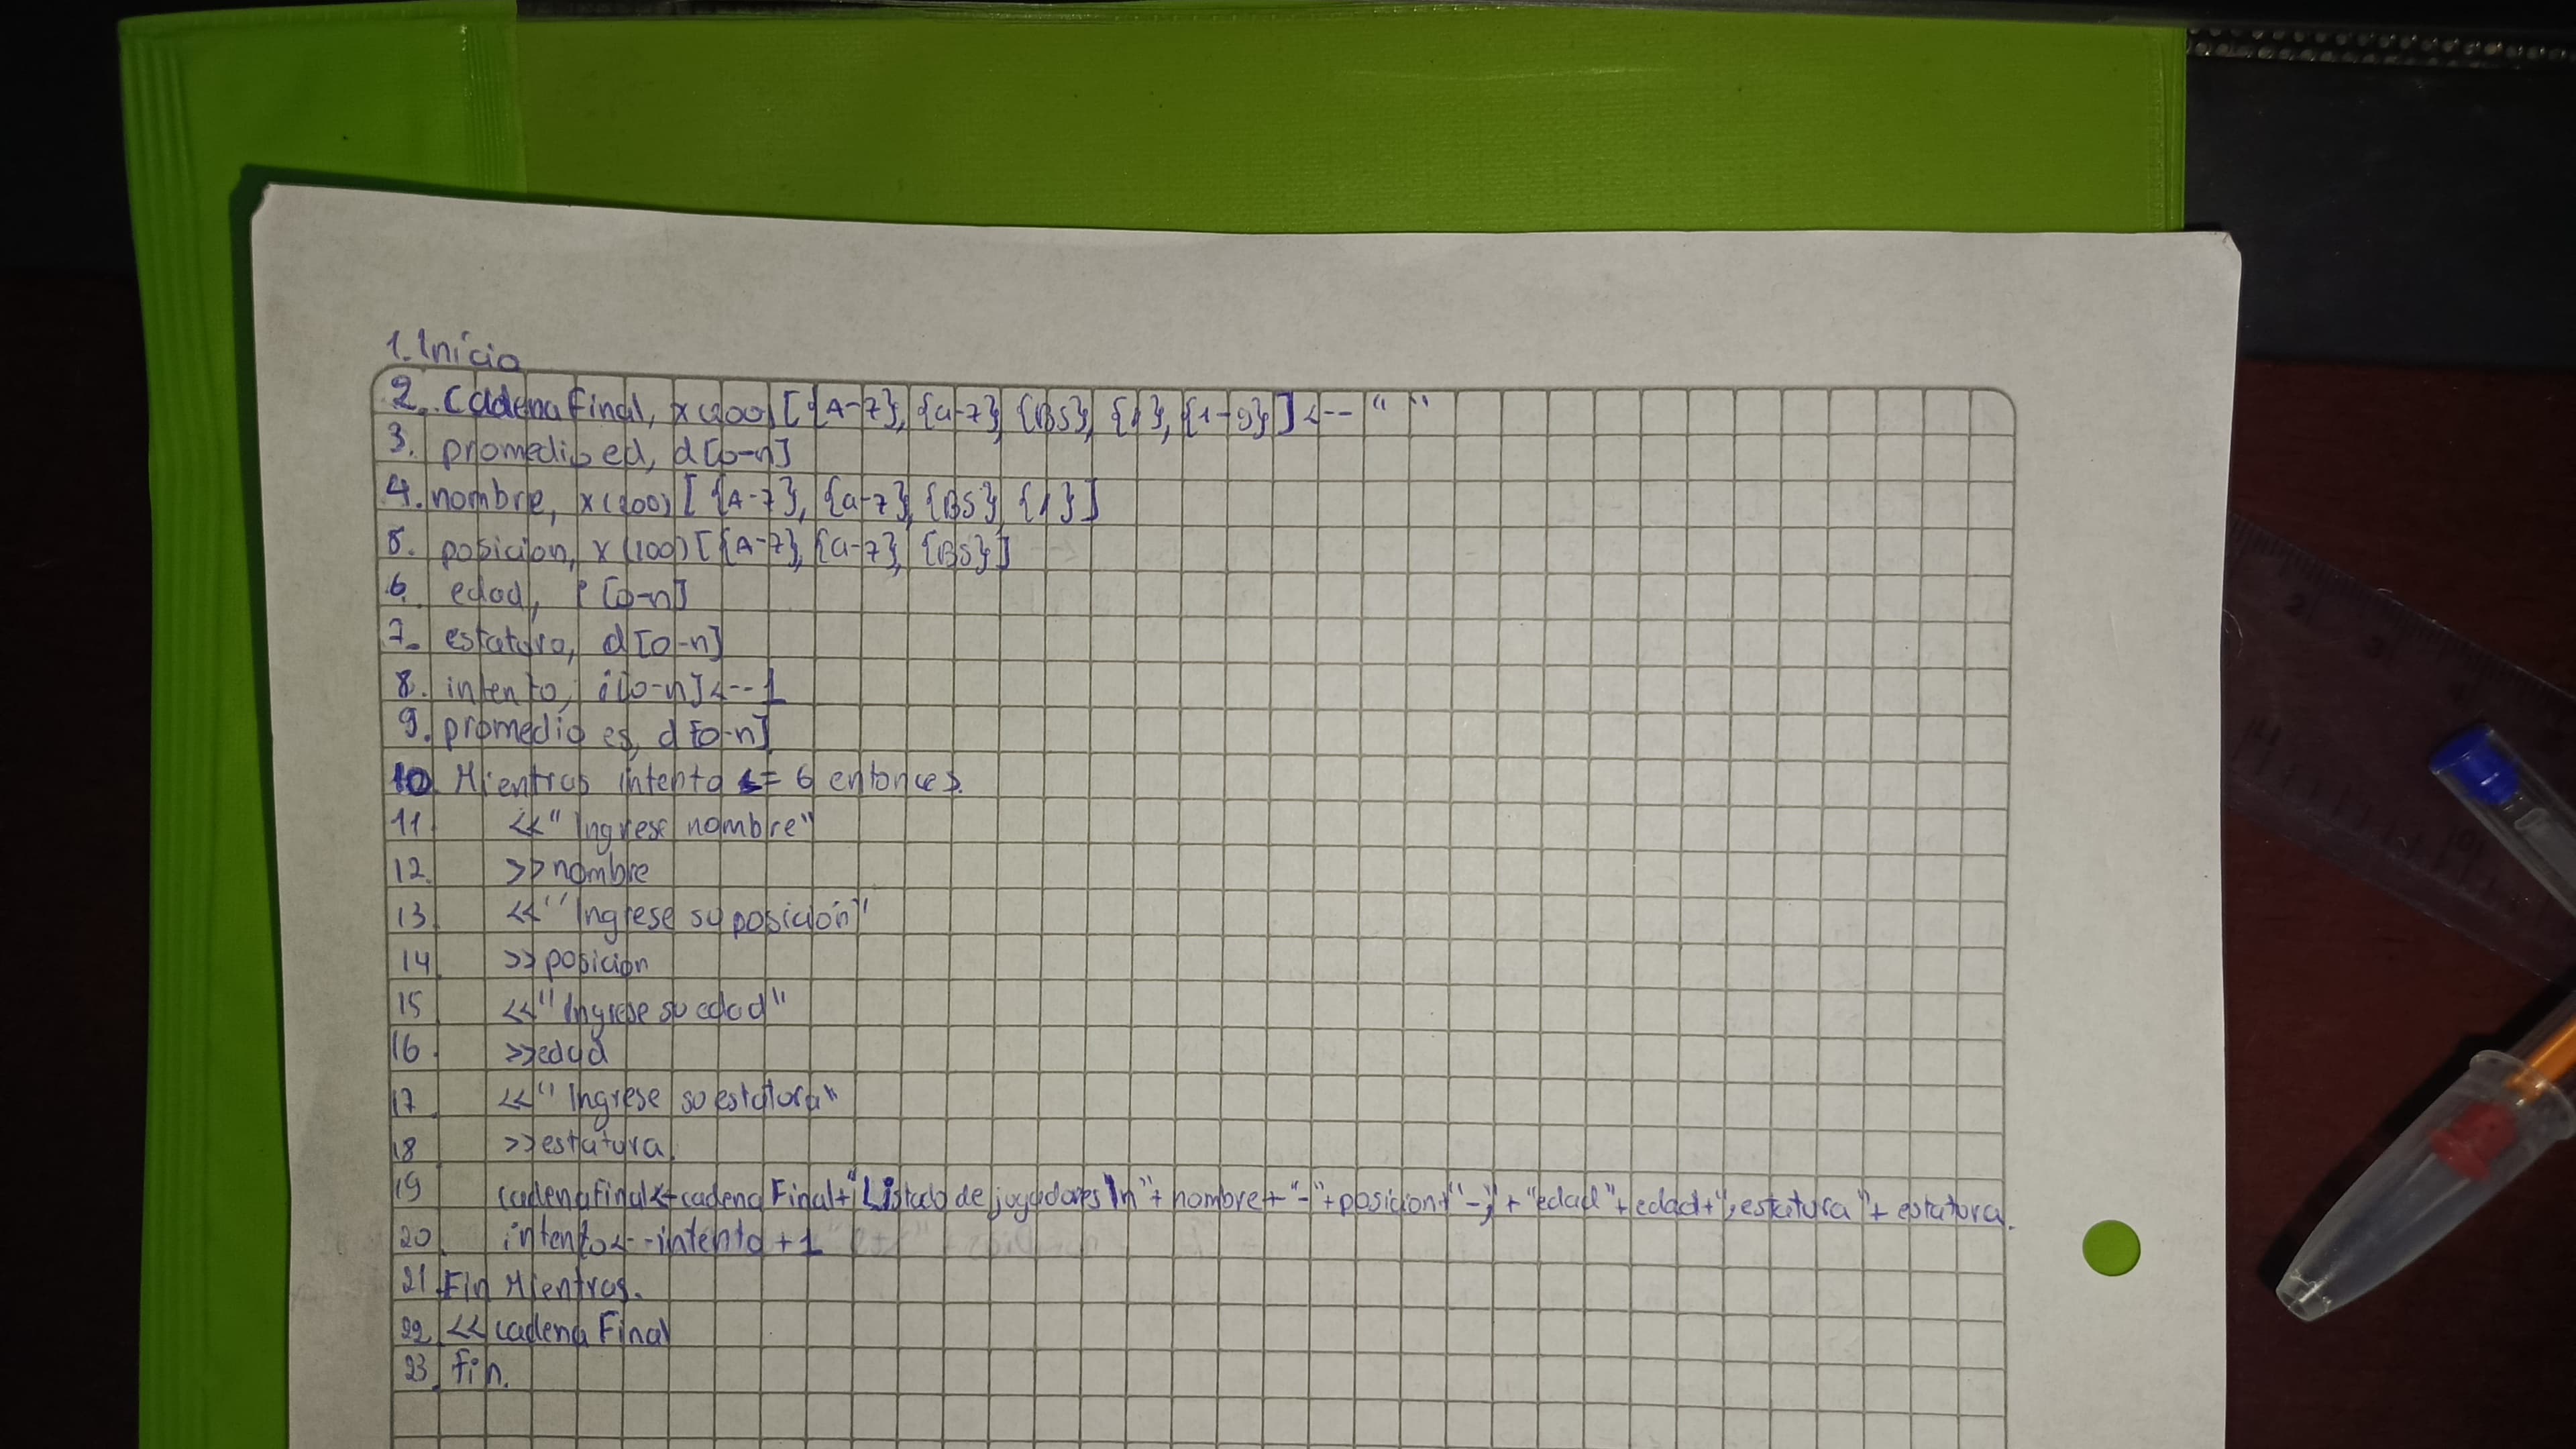 1. Inicio
2. Cadena Final, x(200) [{A-Z}, {a-z}, {BS}, {1}, {1-9}] <-- " "
3. promedio ed, d[0-n]
4. nombre, x(200) [{A-Z}, {a-z}, {BS}, {1}]
5. posicion, x(100) [{A-Z}, {a-z}, {BS}]
6. edad, i [0-n]
7. estatura, d[0-n]
8. intento, i[0-n] <-- 1
9. promedio es, d[0-n]
10. Mientras intento <= 6 entonces.
11. <<"Ingrese nombre"
12. >>nombre
13. <<"Ingrese su posición"
14. >>posicion
15. <<"Ingrese su edad"
16. >>edad
17. <<"Ingrese su estatura"
18. >>estatura.
19. cadenaFinal<-cadena Final+"Listado de jugadores \n"+nombre+"-"+posicion+"-;"+"edad"+edad+",estatura"+estatura.
20. intento<--intento +1
21. Fin Mientras.
22. <<cadena Final
23. fin.